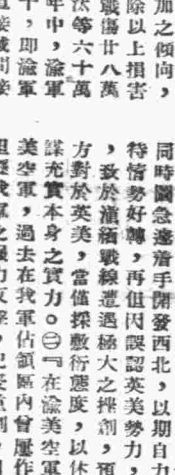 加之傾向，
除以上損害
戰傷廿八萬
等六十萬
年中，渝軍
十，即渝軍
同時圖急速着手開發西北，以期自力
待情勢好轉，再但因誤認英美勢力，
，致於滇緬戰線遭遇極大之挫創，預
方對於英美，當僅採敷衍態度，以休
謀充實本身之實力。㊂『在渝美空軍
美空軍，過去在我軍佔領區內曾屢作